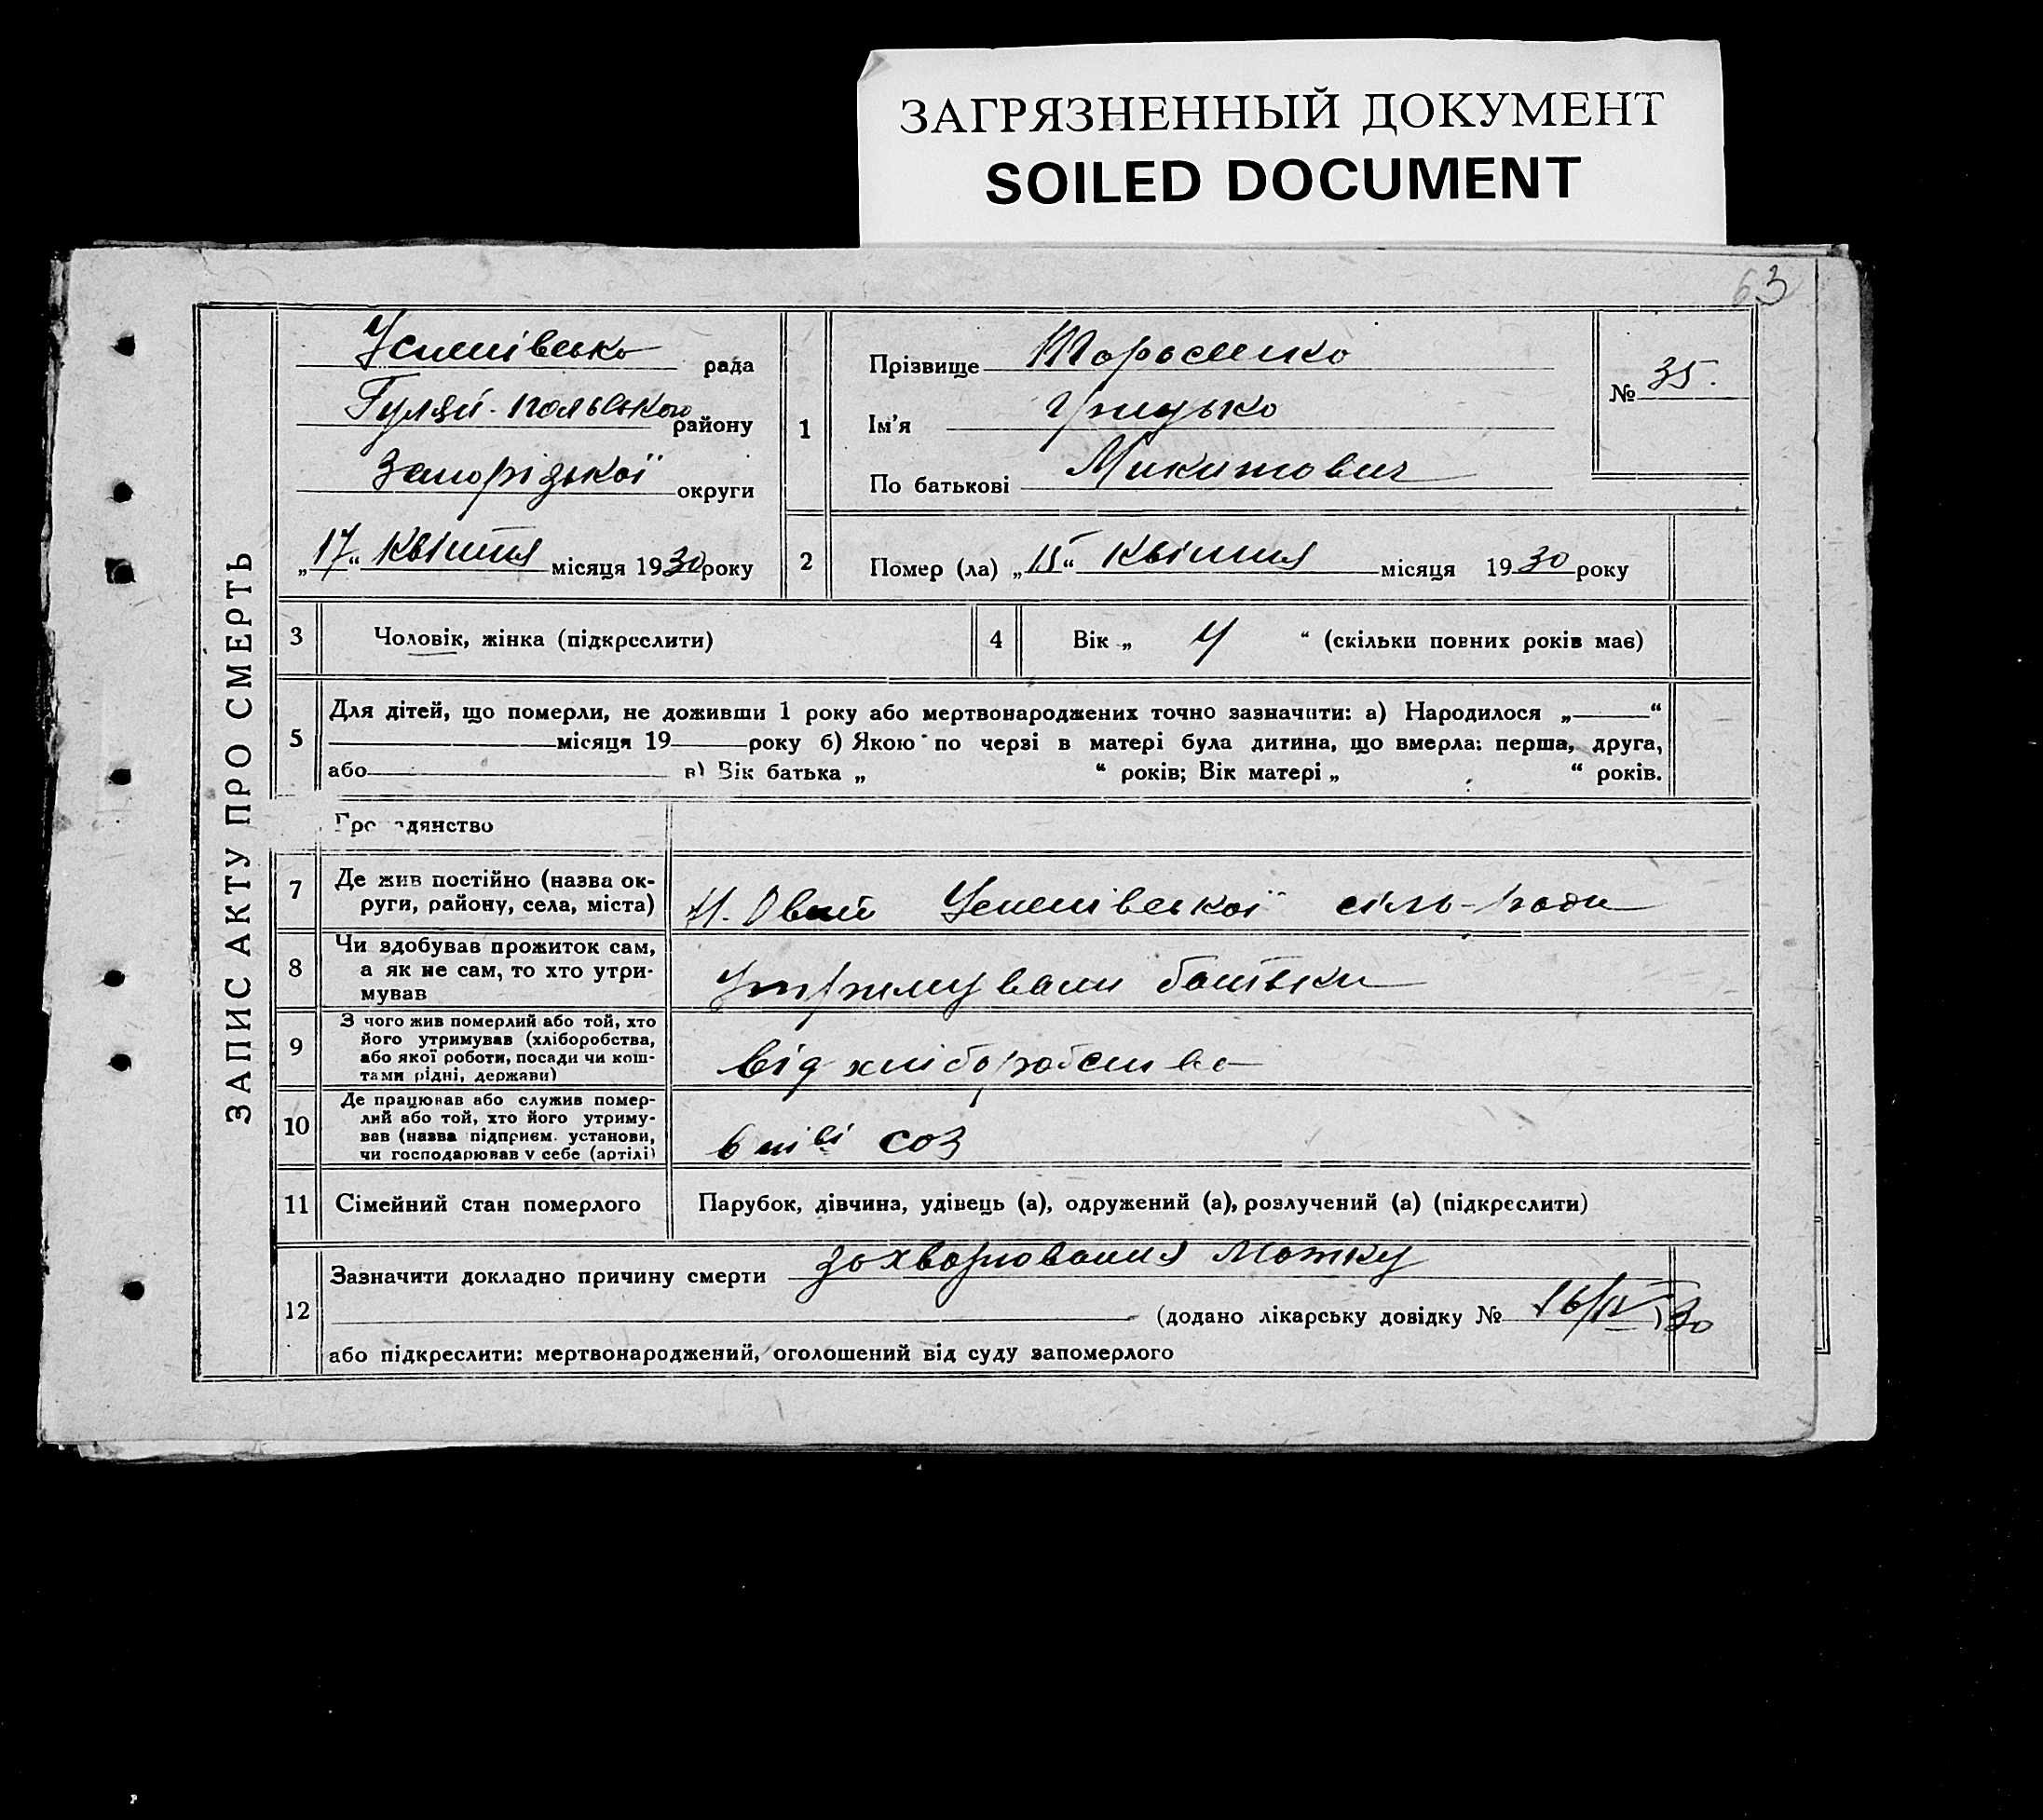 ЗАГРЯЗНЕННЫЙ ДОКУМЕНТ
SOILED DOCUMENT
63
ЗАПИС АКТУ ПРО СМЕРТЬ
Успенівсько рада
Гуляй-польського району
Запорізької округи
„17“ квітня місяця 1930 року
1
Прізвище Тарасенко
Ім'я Грицько
По батькові Микитович
№ 35.
2 Помер (ла) „15“ квітня місяця 1930 року
3 Чоловік, жінка (підкреслити)
4 Вік „ 4 “ (скільки повних років має)
5
Для дітей, що померли, не доживши 1 року або мертвонароджених точно зазначити: а) Народилося „ “
місяця 19 року б) Якою по черзі в матері була дитина, що вмерла: перша, друга,
або в) Вік батька „ “ років; Вік матері „ “ років.
Громадянство
7 Де жив постійно (назва ок-
руги, району, села, міста)
Успенівської сіль-ради
8 Чи здобував прожиток сам,
а як не сам, то хто утри-
мував
Утримували батьки
9 З чого жив померлий або той, хто
його утримував (хліборобства,
або якої роботи, посади чи кош-
тами рідні, держави)
від хліборобства
10 Де працював або служив помер-
лий або той, хто його утриму-
вав (назва підприєм. установи,
чи господарював у себе (артілі)
СОЗ
11 Сімейний стан померлого
Парубок, дівчина, удівець (а), одружений (а), розлучений (а) (підкреслити)
12 Зазначити докладно причину смерти захворювання
(додано лікарську довідку № 16/IV 30
або підкреслити: мертвонароджений, оголошений від суду запомерлого